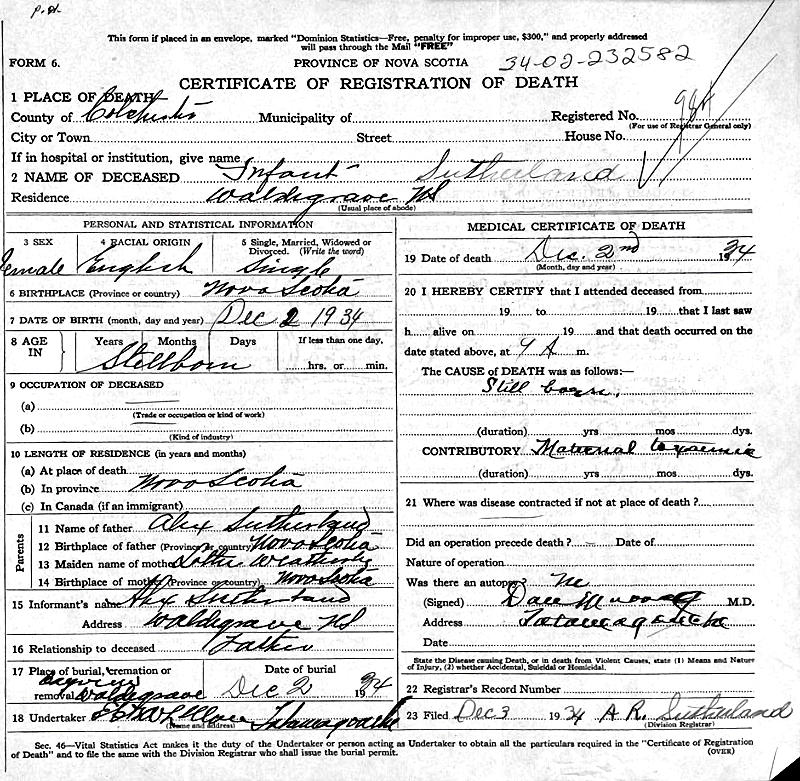 This form if placed in an envelope, marked "Dominion Statistics—Free, penalty for improper use, $300," and properly addressed
will pass through the Mail "FREE"
FORM 6.
PROVINCE OF NOVA SCOTIA
34-02-232582
CERTIFICATE OF REGISTRATION OF DEATH
1 PLACE OF DEATH
County of Colchester Municipality of Registered No. 984
(For use of Registrar General only)
City or Town Street House No.
If in hospital or institution, give name
2 NAME OF DECEASED Infant Sutherland
Residence Waldegrave NS
(Usual place of abode)
PERSONAL AND STATISTICAL INFORMATION
3 SEX 4 RACIAL ORIGIN 5 Single, Married, Widowed or
Divorced. (Write the word)
Female English Single
6 BIRTHPLACE (Province or country) Nova Scotia
7 DATE OF BIRTH (month, day and year) Dec 2 1934
8 AGE IN Years Months Days If less than one day,
Stillborn hrs. or min.
9 OCCUPATION OF DECEASED
(a)
(Trade or occupation or kind of work)
(b)
(Kind of industry)
10 LENGTH OF RESIDENCE (in years and months)
(a) At place of death
(b) In province Nova Scotia
(c) In Canada (if an immigrant)
Parents
11 Name of father Alex Sutherland
12 Birthplace of father (Province or country) Nova Scotia
13 Maiden name of mother
14 Birthplace of mother (Province or country) Nova Scotia
15 Informant's name Alex Sutherland
Address Waldegrave NS
16 Relationship to deceased Father
17 Place of burial, cremation or Date of burial
removal Waldegrave Dec 2 1934
18 Undertaker Tatamagouche
(Name and address)
MEDICAL CERTIFICATE OF DEATH
19 Date of death Dec. 2nd 1934
(Month, day and year)
20 I HEREBY CERTIFY that I attended deceased from
19 to 19 that I last saw
h alive on 19 and that death occurred on the
date stated above, at 9 A m.
The CAUSE OF DEATH was as follows:—
Still born.
(duration) yrs mos dys.
CONTRIBUTORY Maternal toxaemia
(duration) yrs mos dys.
21 Where was disease contracted if not at place of death?
Did an operation precede death? Date of
Nature of operation
Was there an autopsy? No
(Signed) Dan Murray M.D.
Address Tatamagouche
Date
State the Disease causing Death, or in death from Violent Causes, state (1) Means and Nature
of Injury, (2) whether Accidental, Suicidal or Homicidal.
22 Registrar's Record Number
23 Filed Dec 3 1934 A R. Sutherland
(Division Registrar)
Sec. 46—Vital Statistics Act makes it the duty of the Undertaker or person acting as Undertaker to obtain all the particulars required in the "Certificate of Registration
of Death" and to file the same with the Division Registrar who shall issue the burial permit.
(OVER)